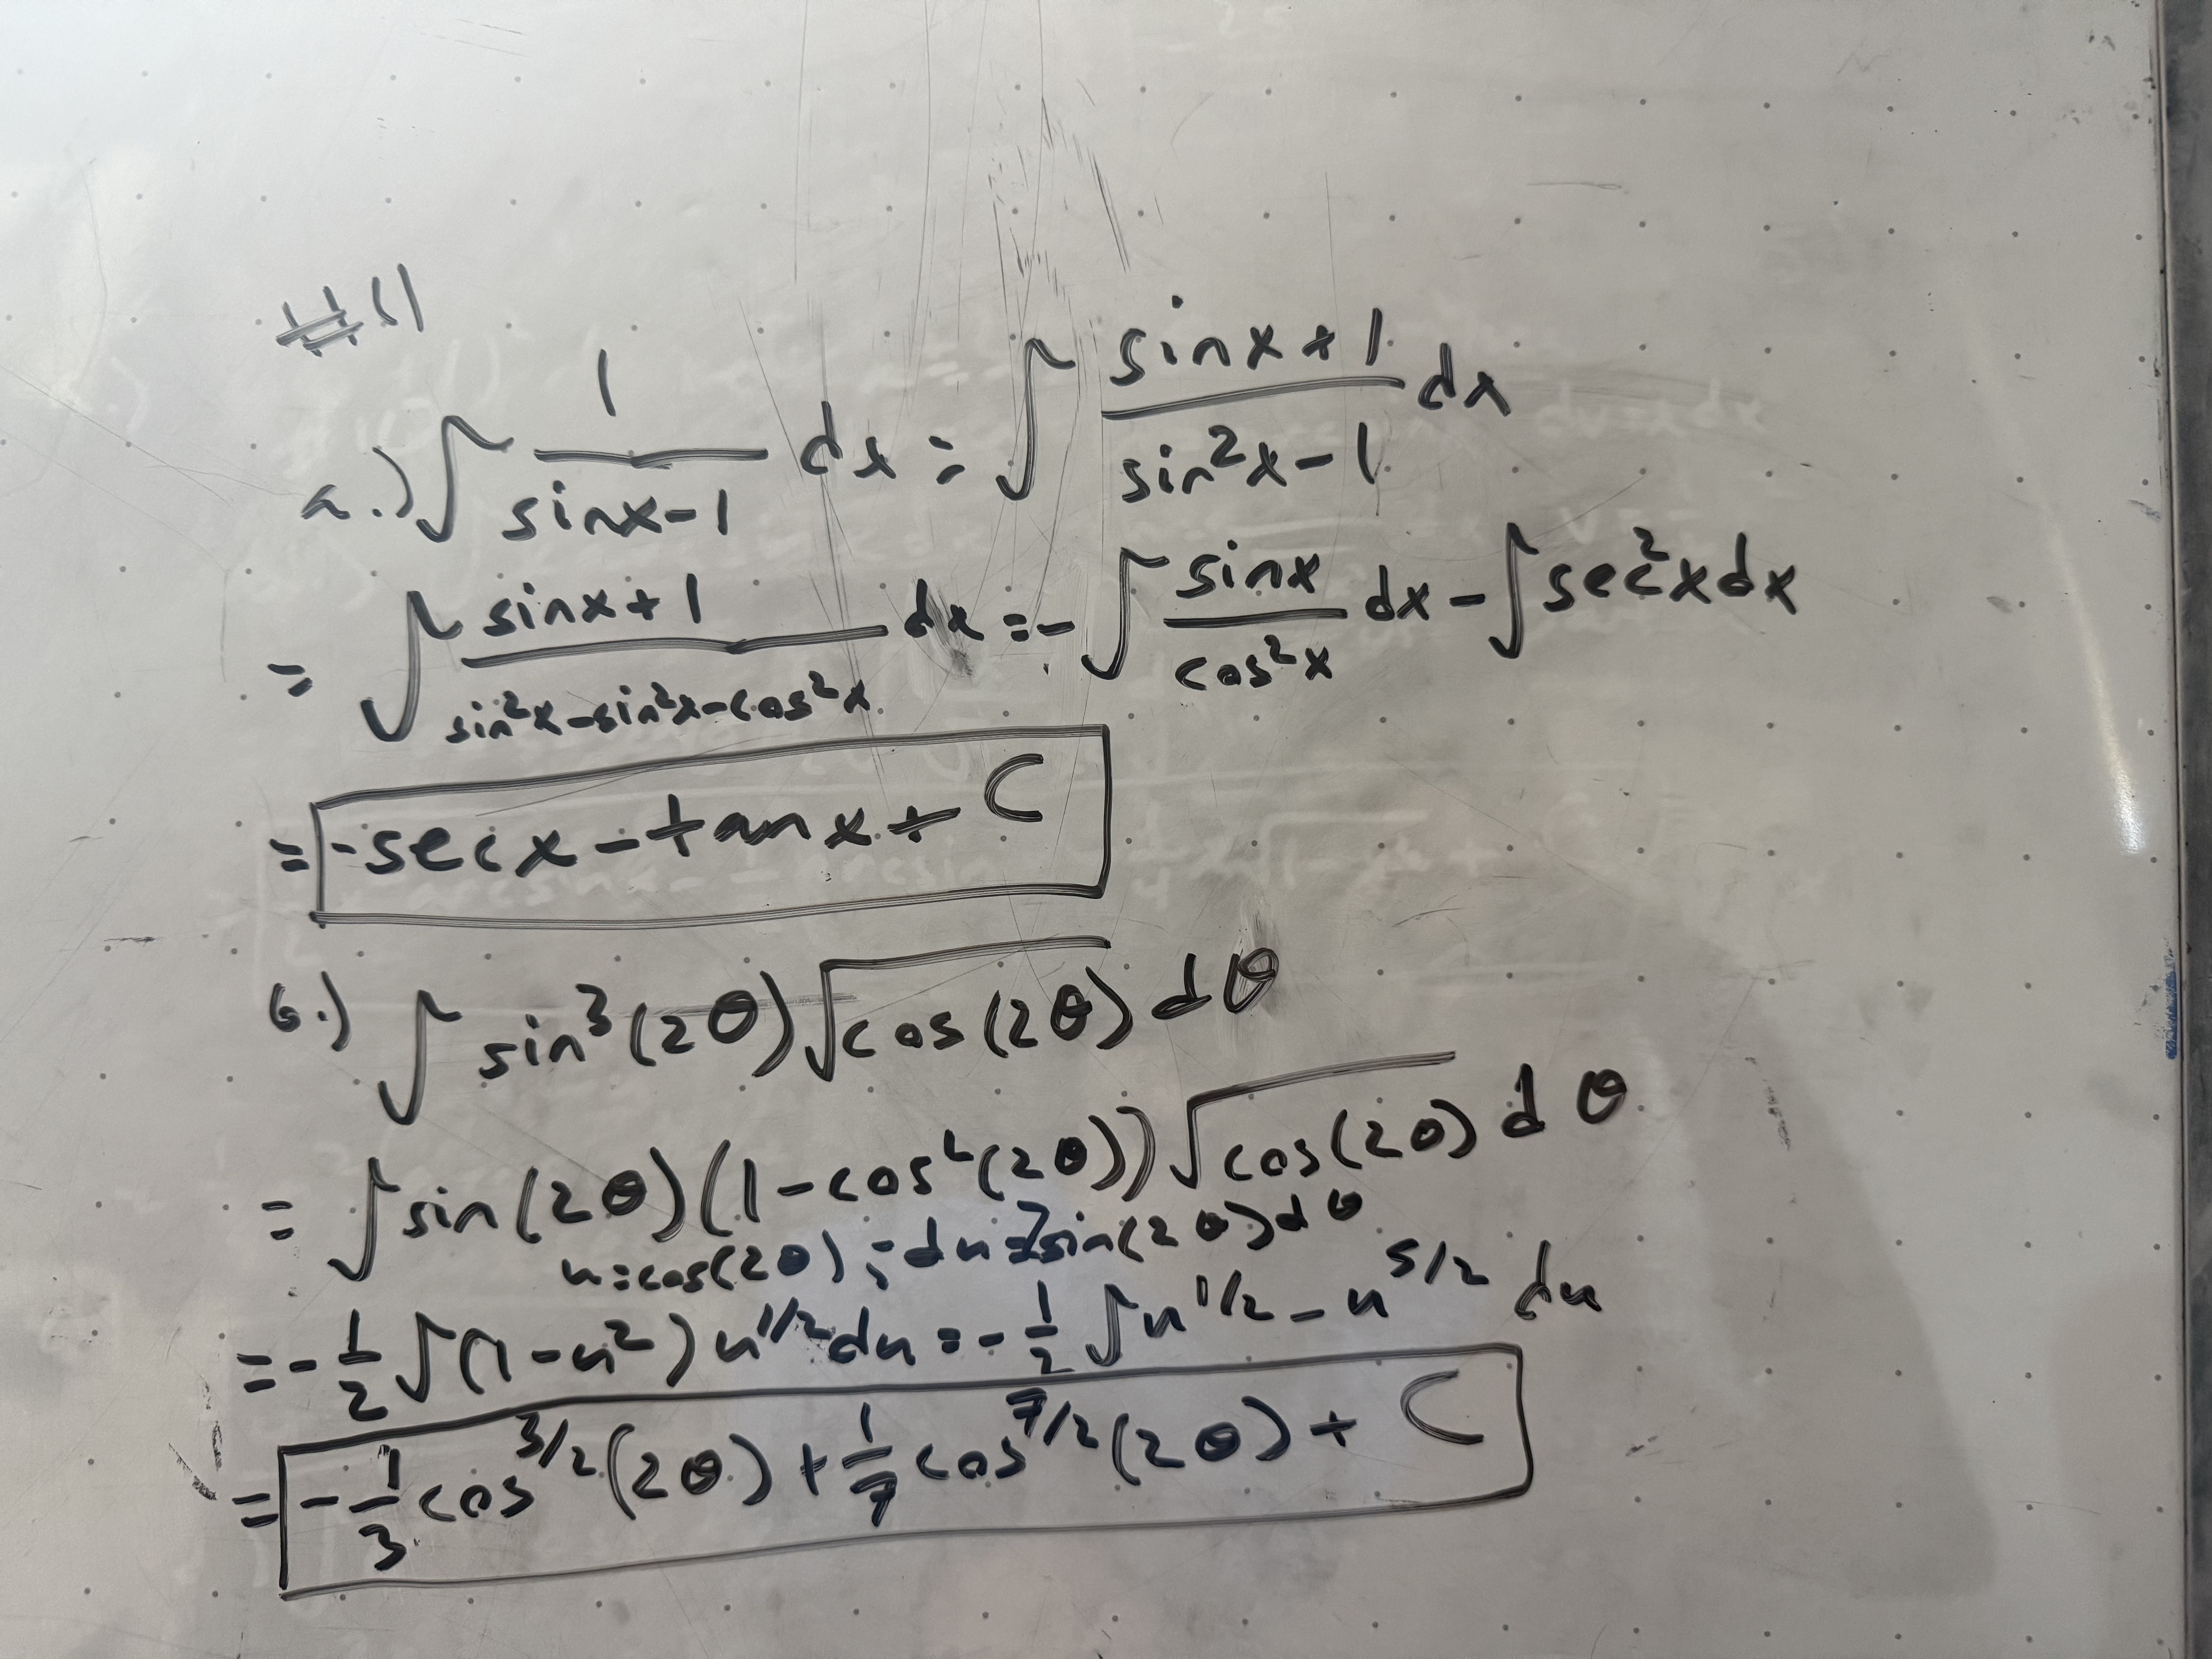 #1
a.) ∫ 1/(sinx-1) dx = ∫ (sinx+1)/(sin²x-1) dx
= ∫ (sinx+1)/(sin²x-sin²x-cos²x) dx = -∫ sinx/cos²x dx - ∫ sec²x dx
= -secx - tanx + C
b.) ∫ sin³(2θ)√cos(2θ) dθ
= ∫ sin(2θ)(1-cos²(2θ))√cos(2θ) dθ
u=cos(2θ); -du=2sin(2θ)dθ
= -1/2 ∫(1-u²)u^(1/2) du = -1/2 ∫ u^(1/2) - u^(5/2) du
= -1/3 cos^(3/2)(2θ) + 1/7 cos^(7/2)(2θ) + C